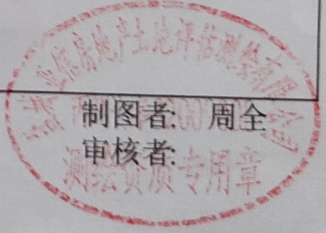 信房地产土地评估测绘有限公司
制图者: 周全
审核者:
测绘资质专用章